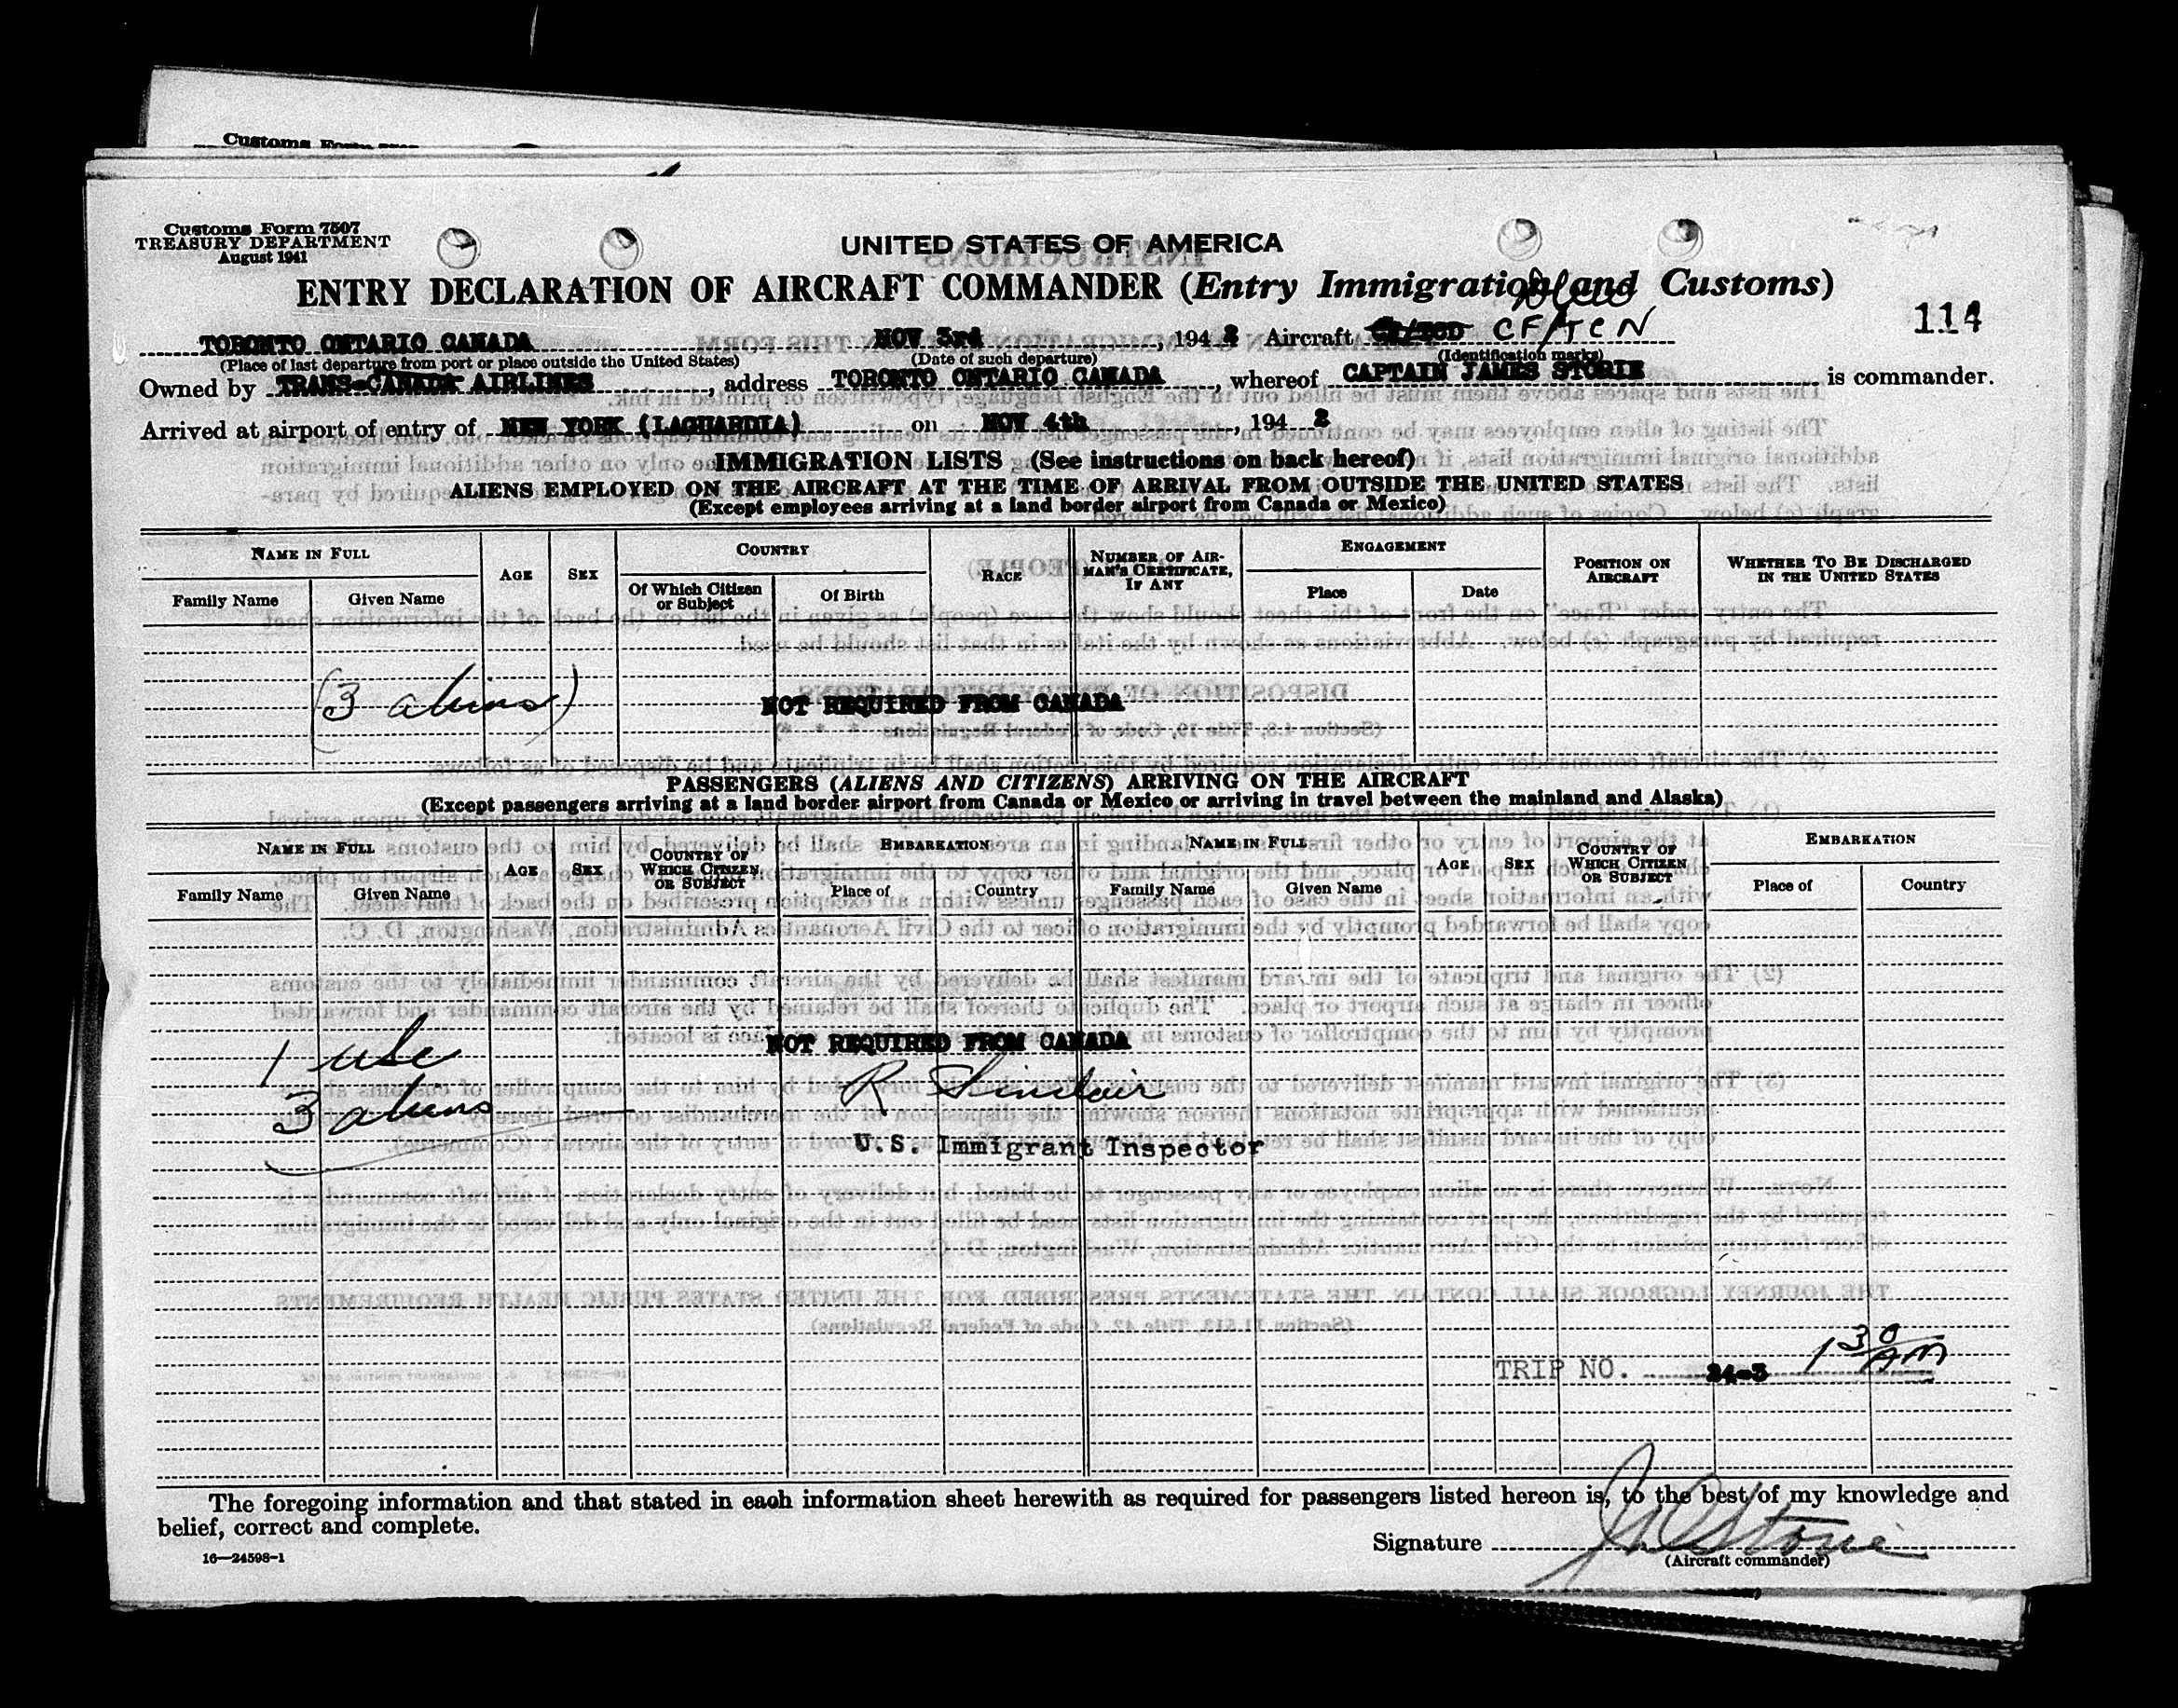 Customs Form
Customs Form 7507
TREASURY DEPARTMENT
August 1941
UNITED STATES OF AMERICA
ENTRY DECLARATION OF AIRCRAFT COMMANDER (Entry Immigration and Customs)
114
TORONTO ONTARIO CANADA NOV 3rd, 1942 Aircraft CF/TCN
(Place of last departure from port or place outside the United States) (Date of such departure) (Identification marks)
Owned by TRANS-CANADA AIRLINES, address TORONTO ONTARIO CANADA, whereof CAPTAIN JAMES STORIE is commander.
Arrived at airport of entry of NEW YORK (LAGUARDIA) on NOV 4th, 1942
IMMIGRATION LISTS (See instructions on back hereof)
ALIENS EMPLOYED ON THE AIRCRAFT AT THE TIME OF ARRIVAL FROM OUTSIDE THE UNITED STATES
(Except employees arriving at a land border airport from Canada or Mexico)
NAME IN FULL AGE SEX COUNTRY RACE NUMBER OF AIRMAN'S CERTIFICATE, IF ANY ENGAGEMENT POSITION ON AIRCRAFT WHETHER TO BE DISCHARGED IN THE UNITED STATES
Family Name Given Name Of Which Citizen or Subject Of Birth Place Date
(3 aliens) NOT REQUIRED FROM CANADA
PASSENGERS (ALIENS AND CITIZENS) ARRIVING ON THE AIRCRAFT
(Except passengers arriving at a land border airport from Canada or Mexico or arriving in travel between the mainland and Alaska)
NAME IN FULL AGE SEX COUNTRY OF WHICH CITIZEN OR SUBJECT EMBARKATION NAME IN FULL AGE SEX COUNTRY OF WHICH CITIZEN OR SUBJECT EMBARKATION
Family Name Given Name Place of Country Family Name Given Name Place of Country
1 usc NOT REQUIRED FROM CANADA
3 aliens R Sinclair
U.S. Immigrant Inspector
TRIP NO. 24-3 1 30 AM
The foregoing information and that stated in each information sheet herewith as required for passengers listed hereon is, to the best of my knowledge and
belief, correct and complete.
Signature J Storie
(Aircraft commander)
16—24598-1